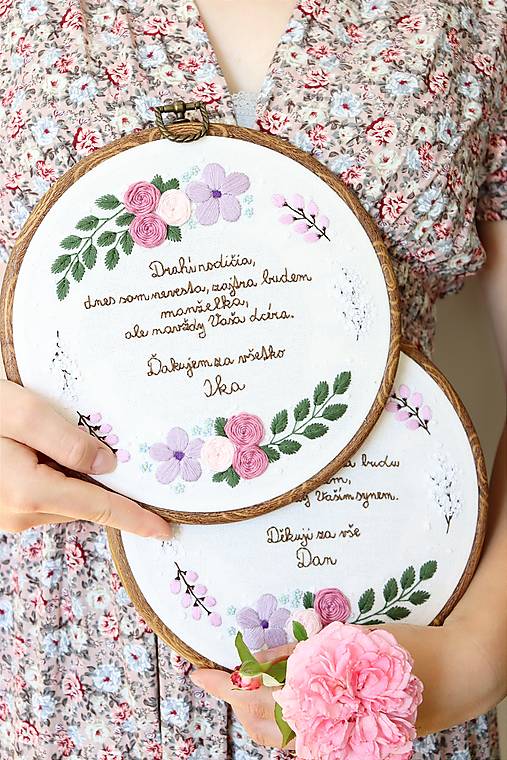 Drahí rodičia,
dnes som nevesta, zajtra budem
manželka,
ale navždy Vaša dcéra.
Ďakujem za všetko
Ika
budu
Vašim synem.
Děkuji za vše
Dan